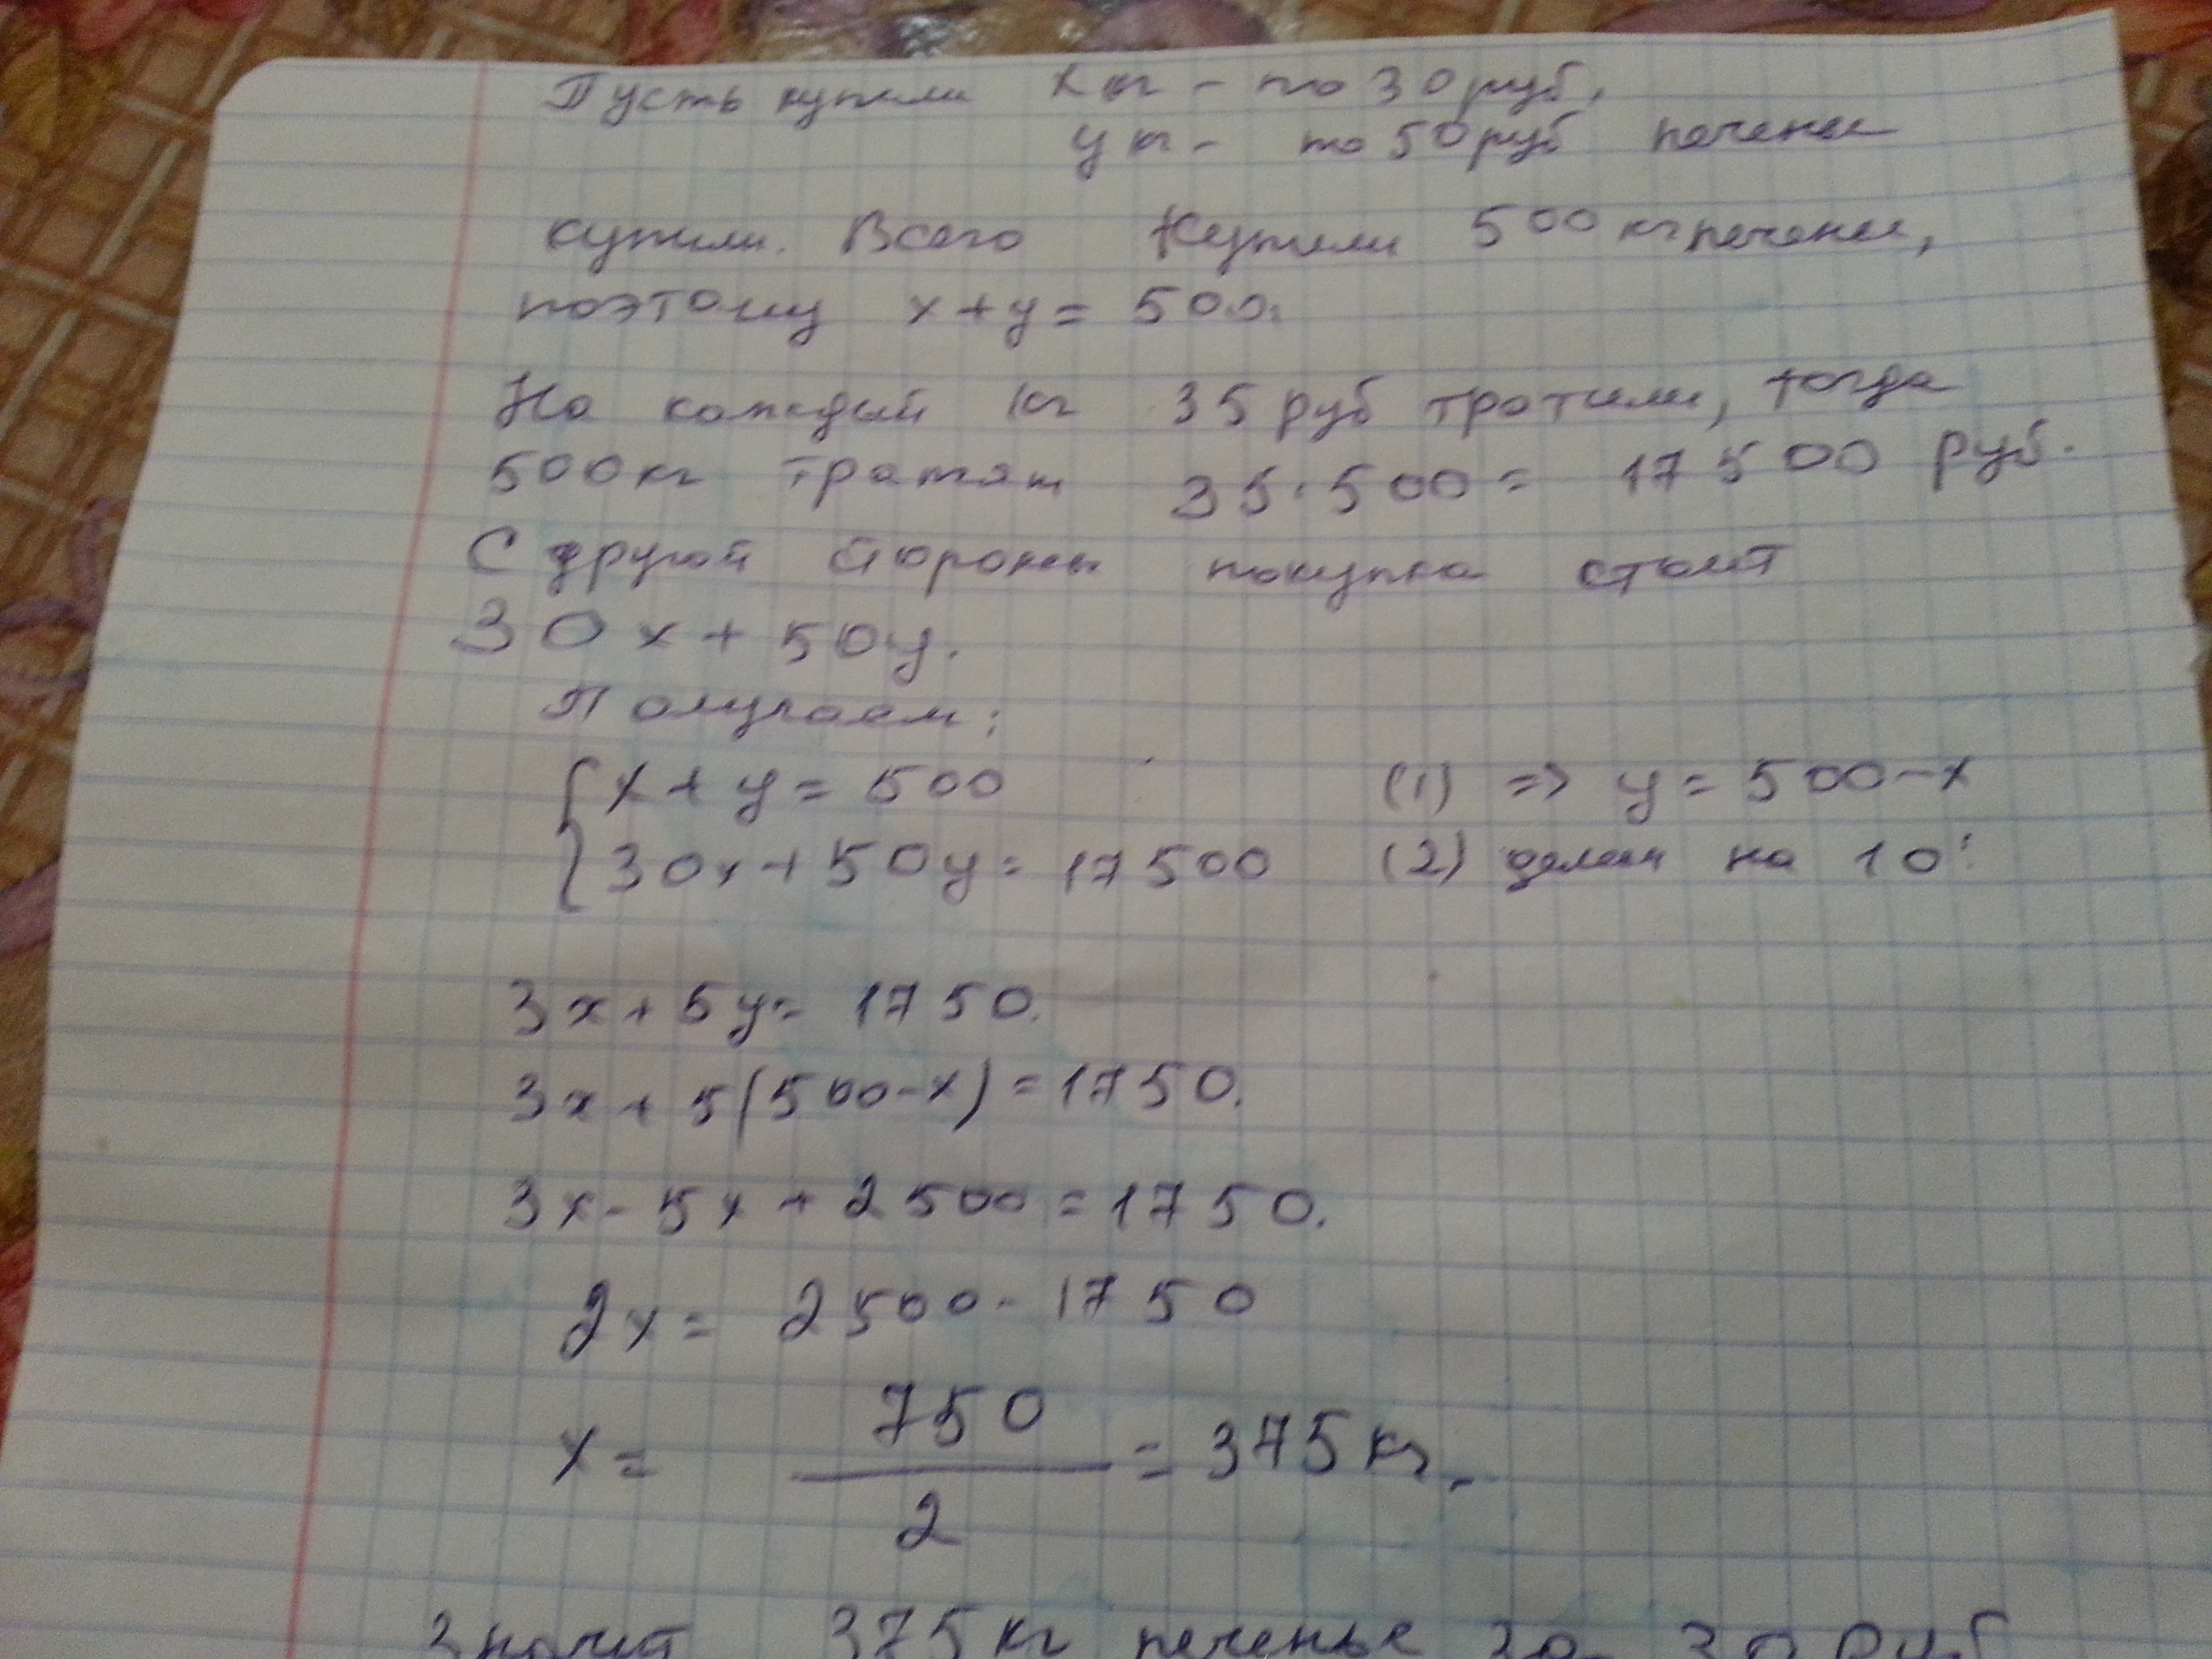 Пусть купили x кг - по 30 руб,
y кг - по 50 руб печенье
купили. Всего купили 500 кг печенье,
поэтому x + y = 500.
На каждый кг 35 руб тратили, тогда
500 кг тратят 35 · 500 = 17 500 руб.
С другой стороны покупка стоит
30x + 50y.
Получаем:
{ x + y = 500 (1) => y = 500 - x
30x + 50y = 17 500 (2) делим на 10:
3x + 5y = 1750.
3x + 5(500 - x) = 1750.
3x - 5x + 2500 = 1750.
2x = 2500 - 1750
x = 750 / 2 = 375 кг.
Значит 375 кг печенье за 30 руб